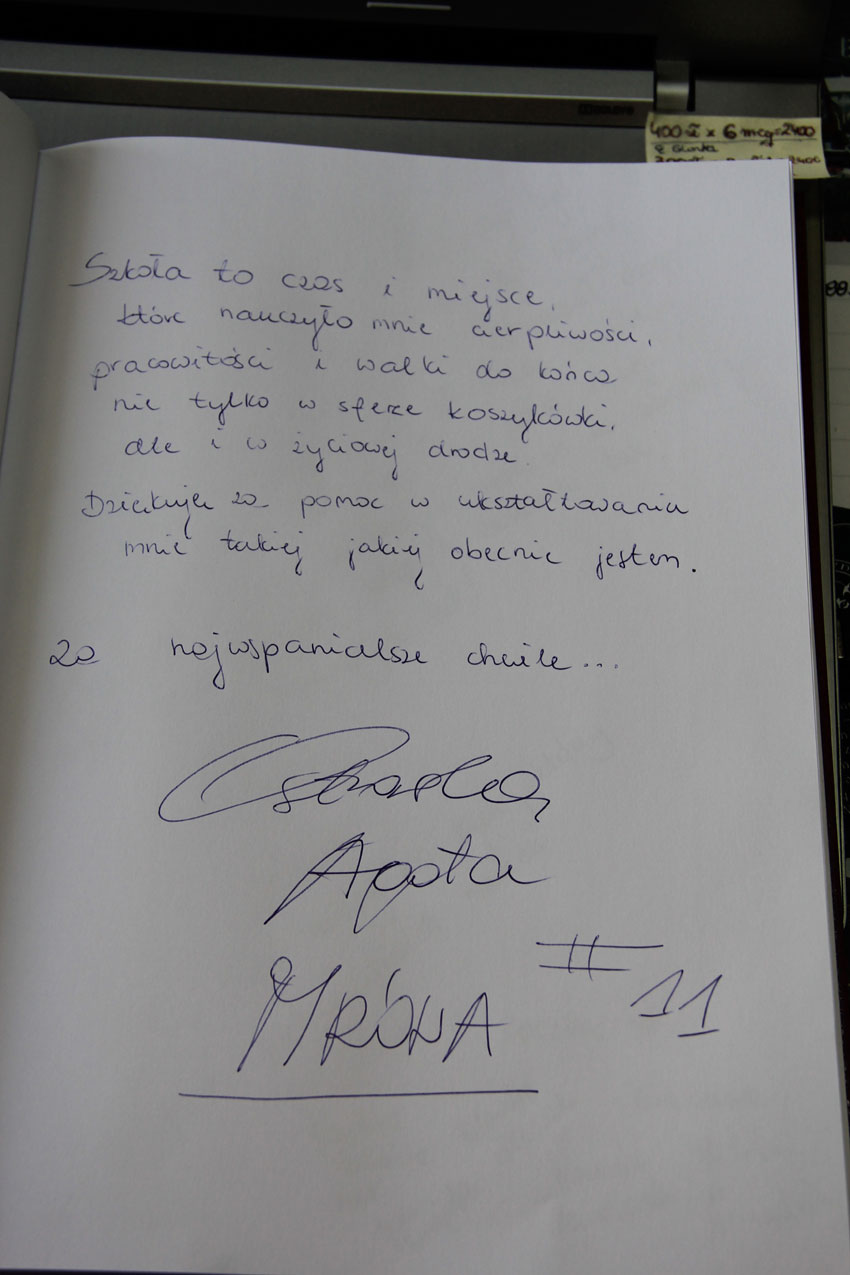 400 zł x 6 mcy=2400
Szkoła to czas i miejsce,
które nauczyło mnie cierpliwości,
pracowitości i walki do końca
nie tylko w sferze koszykówki,
ale i w życiowej drodze.
Dziękuję za pomoc w ukształtowaniu
mnie takiej jakiej obecnie jestem.
za najwspanialsze chwile...
Agata
MRÓWA #11